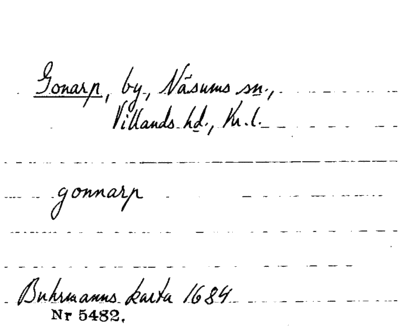 Gonarp, by, Näsums sn.,
Villands hd., Kr.l.
gonnarp
Buhrmanns karta 1684
Nr 5482.